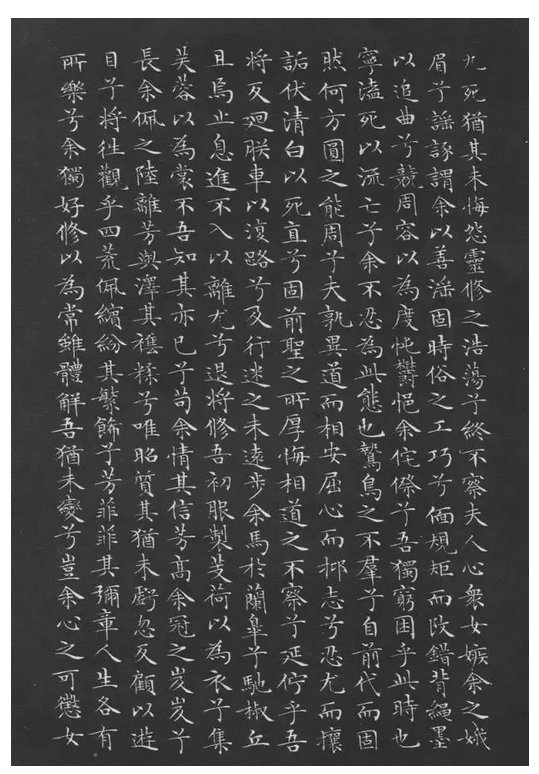 九死猶其未悔怨靈修之浩蕩兮終不察夫人心衆女嫉余之娥
眉兮謡諑謂余以善滛固時俗之工巧兮偭規矩而改錯背繩墨
以追曲兮競周容以為度忳鬱悒余侘傺兮吾獨窮困乎此時也
寧溘死以流亡兮余不忍為此態也鷙鳥之不羣兮自前代而固
然何方圓之能周兮夫孰異道而相安屈心而抑志兮忍尤而攘
詬伏清白以死直兮固前聖之所厚悔相道之不察兮延佇乎吾
將反迴朕車以復路兮及行迷之未遠步余馬於蘭皋兮馳椒丘
且焉止息進不入以離尤兮退將修吾初服製芰荷以為衣兮集
芙蓉以為裳不吾知其亦已兮苟余情其信芳高余冠之岌岌兮
長余佩之陸離芳與澤其雜糅兮唯昭質其猶未虧忽反顧以遊
目兮將往觀乎四荒佩繽紛其繁飾兮芳菲菲其彌章人生各有
所樂兮余獨好修以為常雖體解吾猶未變兮豈余心之可懲女